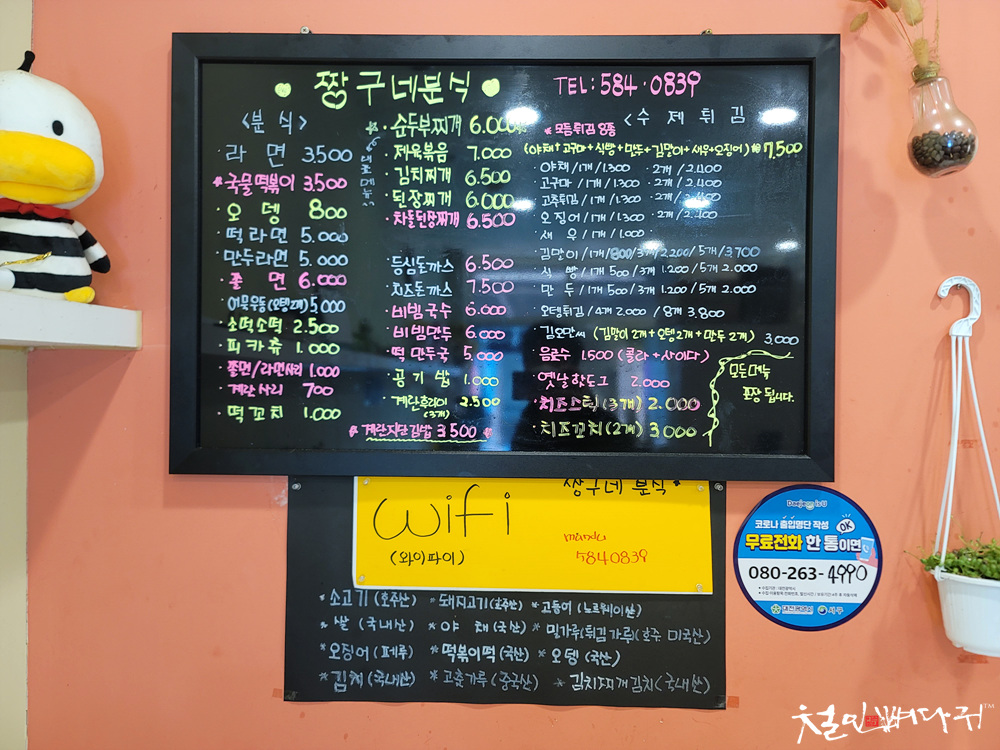 짱구네분식
TEL: 584·0839
<분식>
라면 3.500
*국물떡볶이 3.500
·오뎅 800
·떡라면 5.000
·만두라면 5.000
·쫄면 6.000
·어묵우동(오뎅2개) 5.000
·소떡소떡 2.500
·피카츄 1.000
·쫄면/라면사리 1.000
·계란사리 700
·떡꼬치 1.000
·순두부찌개 6.000
·제육볶음 7.000
·김치찌개 6.500
·된장찌개 6.000
·차돌된장찌개 6.500
·등심돈까스 6.500
·치즈돈까스 7.500
·비빔국수 6.000
·비빔만두 6.000
·떡만두국 5.000
·공기밥 1.000
·계란후라이 2.500
(3개)
*계란지단김밥 3.500*
<수제튀김>
*모듬튀김 8종
(야채+고구마+식빵+만두+김말이+새우+오징어) 7,500
·야채/1개/1.300 ·2개/2.400
·고구마/1개/1.300 ·2개/2.400
·고추튀김/1개/1.300 ·2개/2.400
·오징어/1개/1.300 ·2개/2.400
·새우/1개/1.000
·김말이/1개/800/3개/2200/5개/3.700
·식빵/1개 500/3개 1.200/5개 2.000
·만두/1개 500/3개 1.200/5개 2.000
·오뎅튀김/4개 2.000 /8개 3.800
·김오만씨 (김말이 2개+오뎅2개+만두 2개) 3,000
·음료수 1.500 (콜라+사이다)
·옛날핫도그 2.000
·치즈스틱(3개) 2.000
·치즈꼬치(2개) 3.000
모든메뉴
포장 됩니다.
짱구네 분식*
wifi
(와이파이)
mandu
5840839
*소고기(호주산) *돼지고기(호주산) *고등어(노르웨이산)
*쌀(국내산) *야채(국산) *밀가루(튀김가루)(호주 미국산)
*오징어(페루) *떡볶이떡(국산) *오뎅(국산)
*김치(국내산) *고춧가루(중국산) *김치찌개김치(국내산)
Daejeon is U
코로나 출입명단 작성
OK
무료전화 한 통이면
080-263-4990
대전광역시 서구
철민뼈다귀™